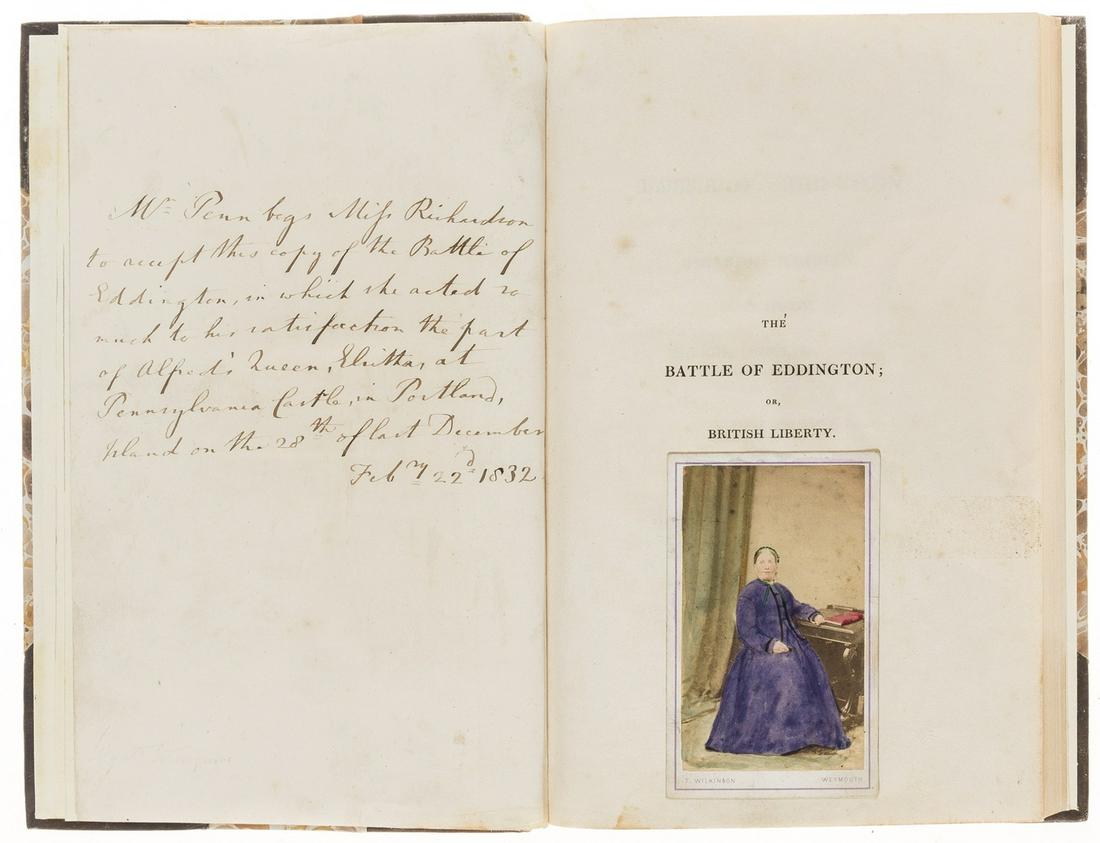 Mr Penn begs Miss Richardson
to accept this copy of the Battle of
Eddington, in which she acted so
much to his satisfaction the part
of Alfred's Queen, Elsitha, at
Pennsylvania Castle, in Portland,
Island on the 28th of last December
Febry 22d 1832
THE
BATTLE OF EDDINGTON;
OR,
BRITISH LIBERTY.
T. WILKINSON WEYMOUTH